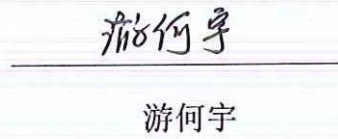 游何宇
游何宇